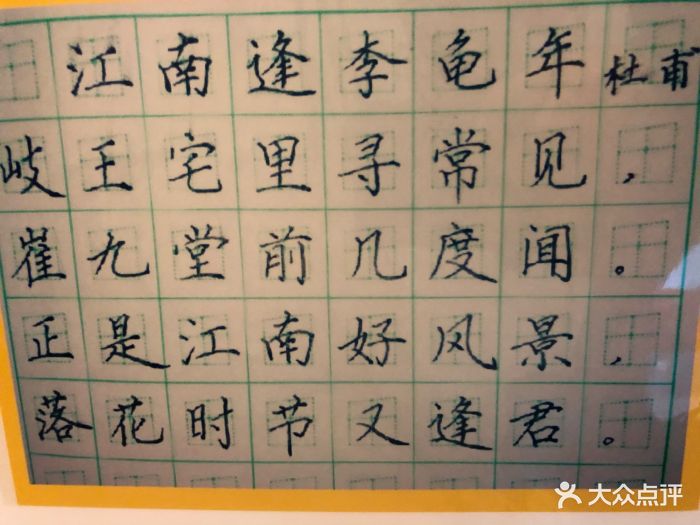 江南逢李龟年 杜甫
岐王宅里寻常见，
崔九堂前几度闻。
正是江南好风景，
落花时节又逢君。
大众点评